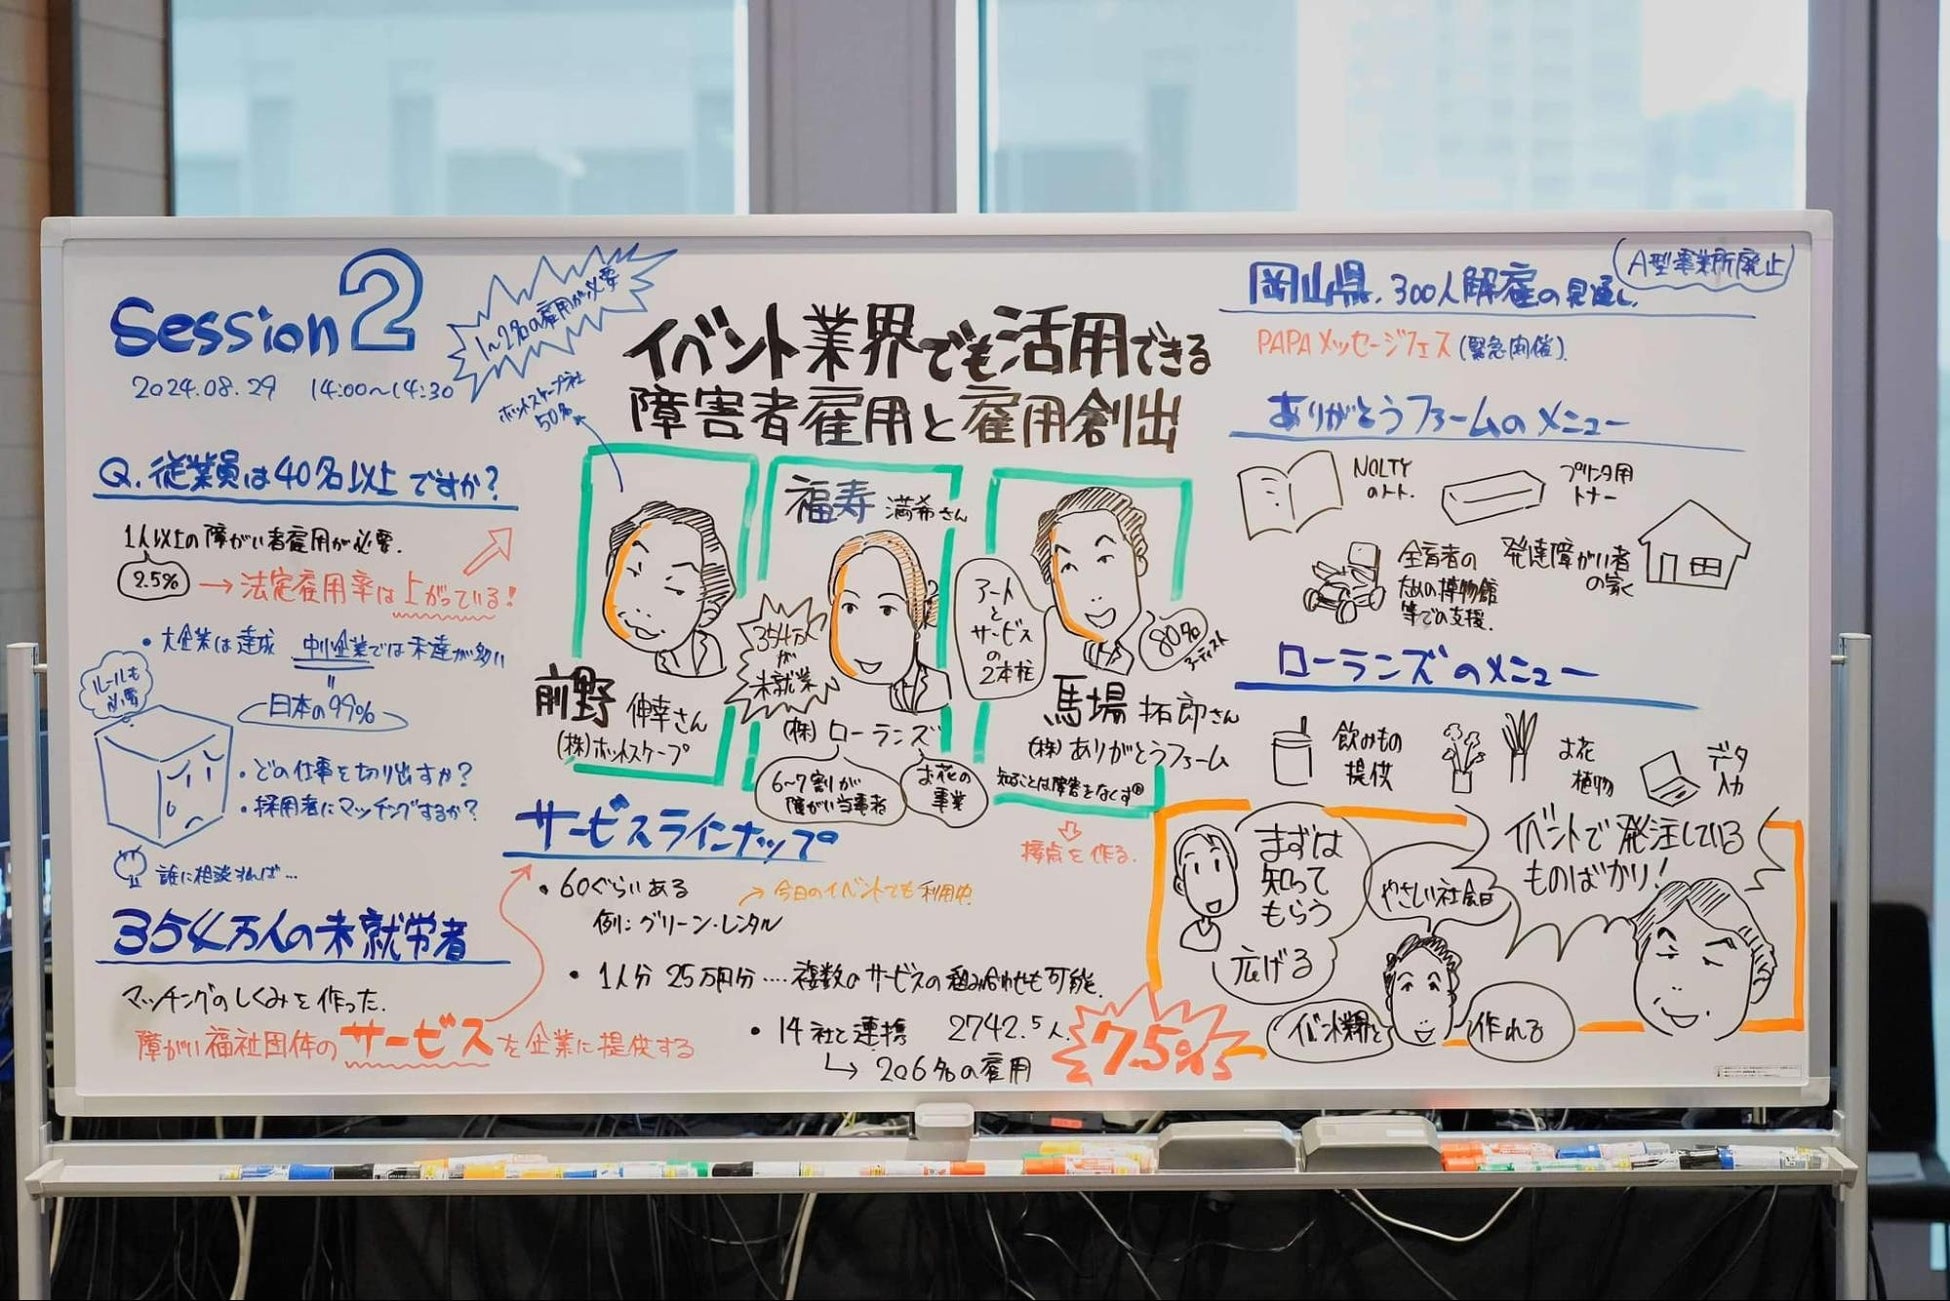 Session 2
2024.08.29 14:00〜14:30
1〜2名の雇用が必要
ホットスケープ社
50名
イベント業界でも活用できる
障害者雇用と雇用創出
Q. 従業員は40名以上ですか?
1人以上の障がい者雇用が必要.
2.5% → 法定雇用率は上がっている!
・大企業は達成 中小企業では未達が多い
日本の99%
ルールも
必要
・どの仕事を切り出すか?
・採用者にマッチングするか?
誰に相談すれば…
354万人の未就労者
マッチングのしくみを作った.
障がい福祉団体のサービスを企業に提供する
前野 伸幸さん
(株)ホットスケープ
福寿 満希さん
354万人
が
未就業
(株)ローランズ
6〜7割が
障がい当事者
お花の
事業
アート
と
サービス
の
2本柱
80名
アーティスト
馬場 拓郎さん
(株)ありがとうファーム
知ることは障害をなくす®
接点を作る.
サービスラインナップ
・60ぐらいある → 今日のイベントでも利用中.
例:グリーン・レンタル
・1人分 25万円分‥‥複数のサービスの組み合わせも可能.
・14社と連携 2742.5人.
206名の雇用
7.5%
岡山県.300人解雇の見通し.
A型事業所廃止
PAPAメッセージフェス(緊急開催).
ありがとうファームのメニュー
NOLTY
のノート.
プリンタ用
トナー
全盲者の
ための博物館
等での支援.
発達障がい者
の家
ローランズのメニュー
飲みもの
提供
お花
植物
データ
入力
まずは
知って
もらう
広げる
やさしい社会は
イベント業界と
作れる
イベントで発注している
ものばかり!